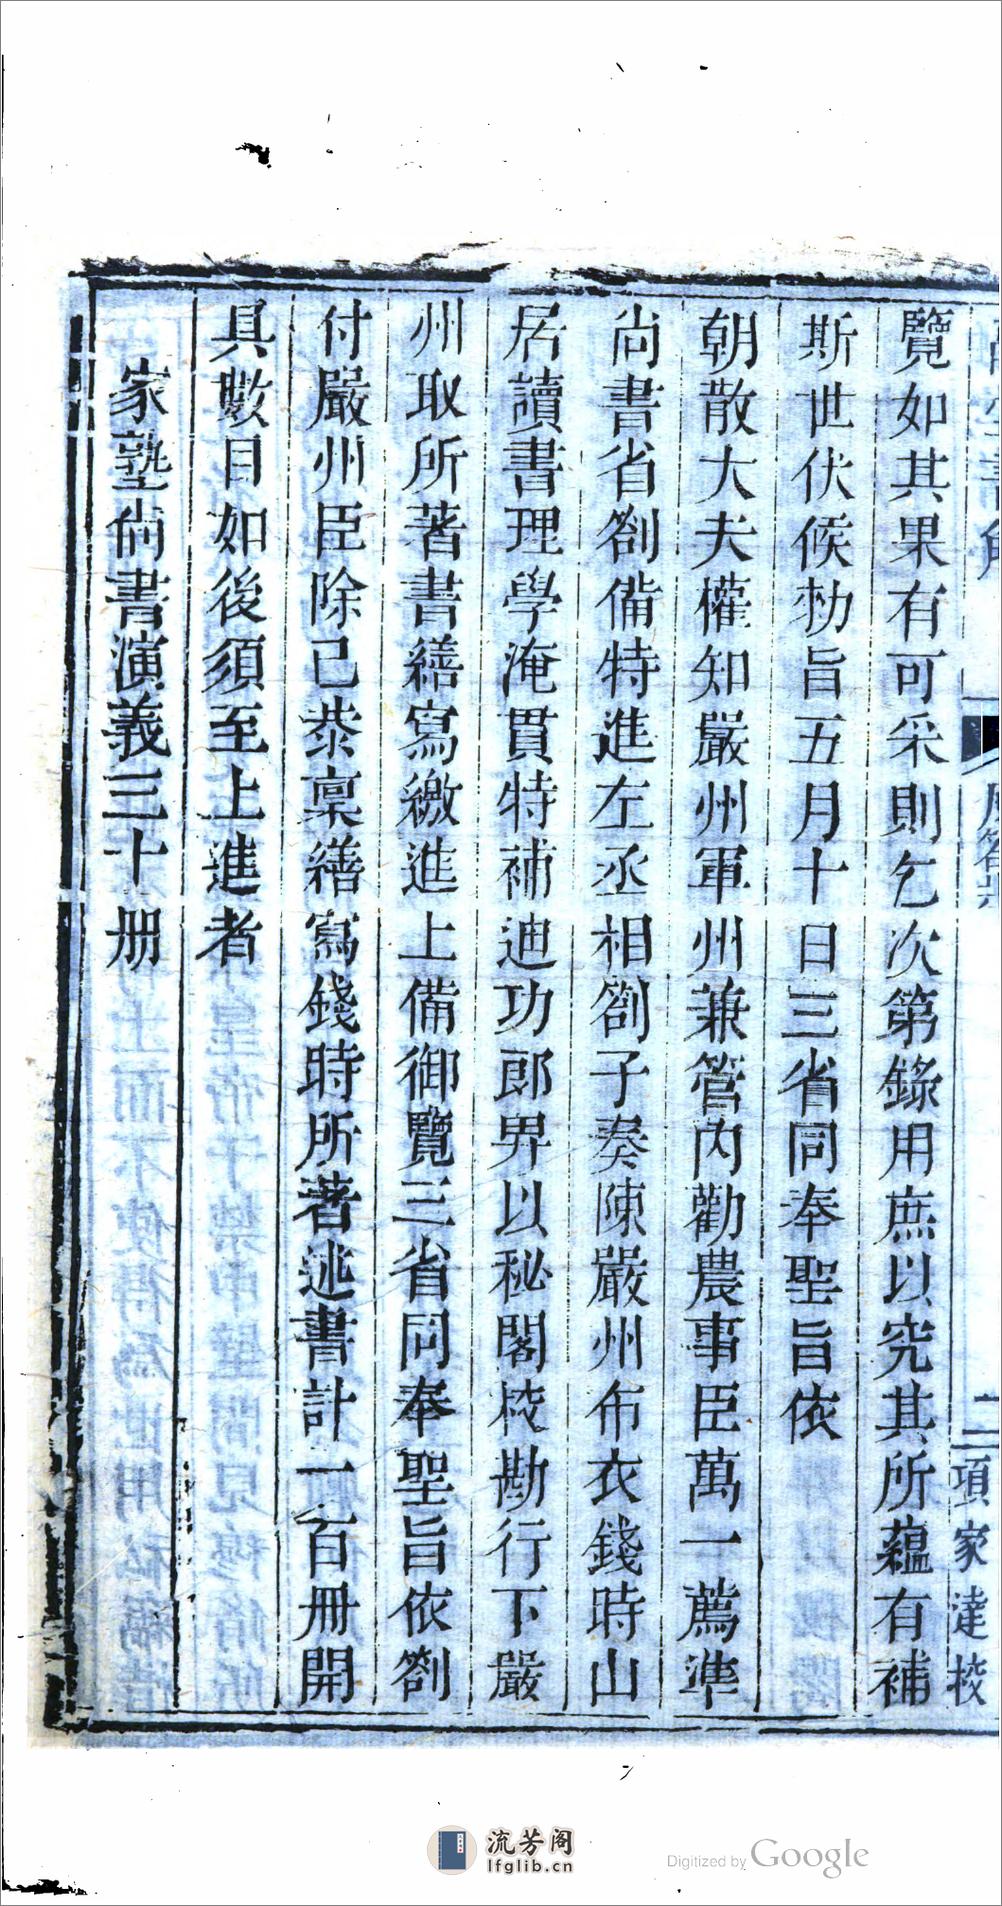 覽如其果有可采則乞次第錄用庶以究其所蘊有補
斯世伏候勑旨五月十日三省同奉聖旨依
朝散大夫權知嚴州軍州兼管內勸農事臣萬一薦準
尚書省劄備特進左丞相劄子奏陳嚴州布衣錢時山
居讀書理學淹貫特補迪功郎畀以秘閣校勘行下嚴
州取所著書繕寫繳進上備御覽三省同奉聖旨依劄
付嚴州臣除已恭稟繕寫錢時所著述書計一百冊開
具數目如後須至上進者
家塾尚書演義三十册
二 項家達校
流芳阁
lfglib.cn
Digitized by Google